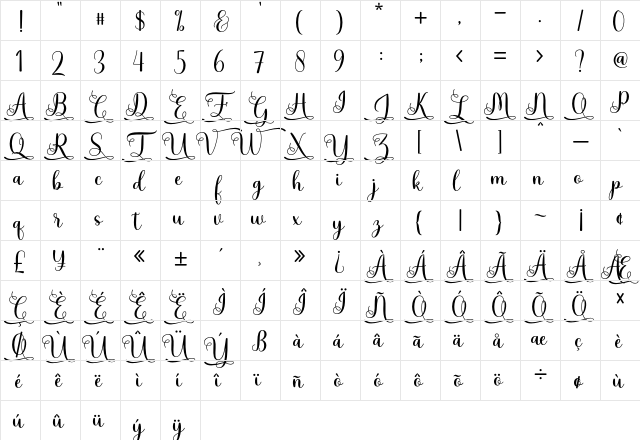 ! " # $ % & ' ( ) * + , − . / 0
1 2 3 4 5 6 7 8 9 : ; < = > ? @
A B C D E F G H I J K L M N O P
Q R S T U V W X Y Z [ \ ] ^ — `
a b c d e f g h i j k l m n o p
q r s t u v w x y z { | } ~ ¡ ¢
£ ¥ ¨ « ± ´ ¸ » ¿ À Á Â Ã Ä Å Æ
Ç È É Ê Ë Ì Í Î Ï Ñ Ò Ó Ô Õ Ö ×
Ø Ù Ú Û Ü Ý ß à á â ã ä å æ ç è
é ê ë ì í î ï ñ ò ó ô õ ö ÷ ø ù
ú û ü ý ÿ